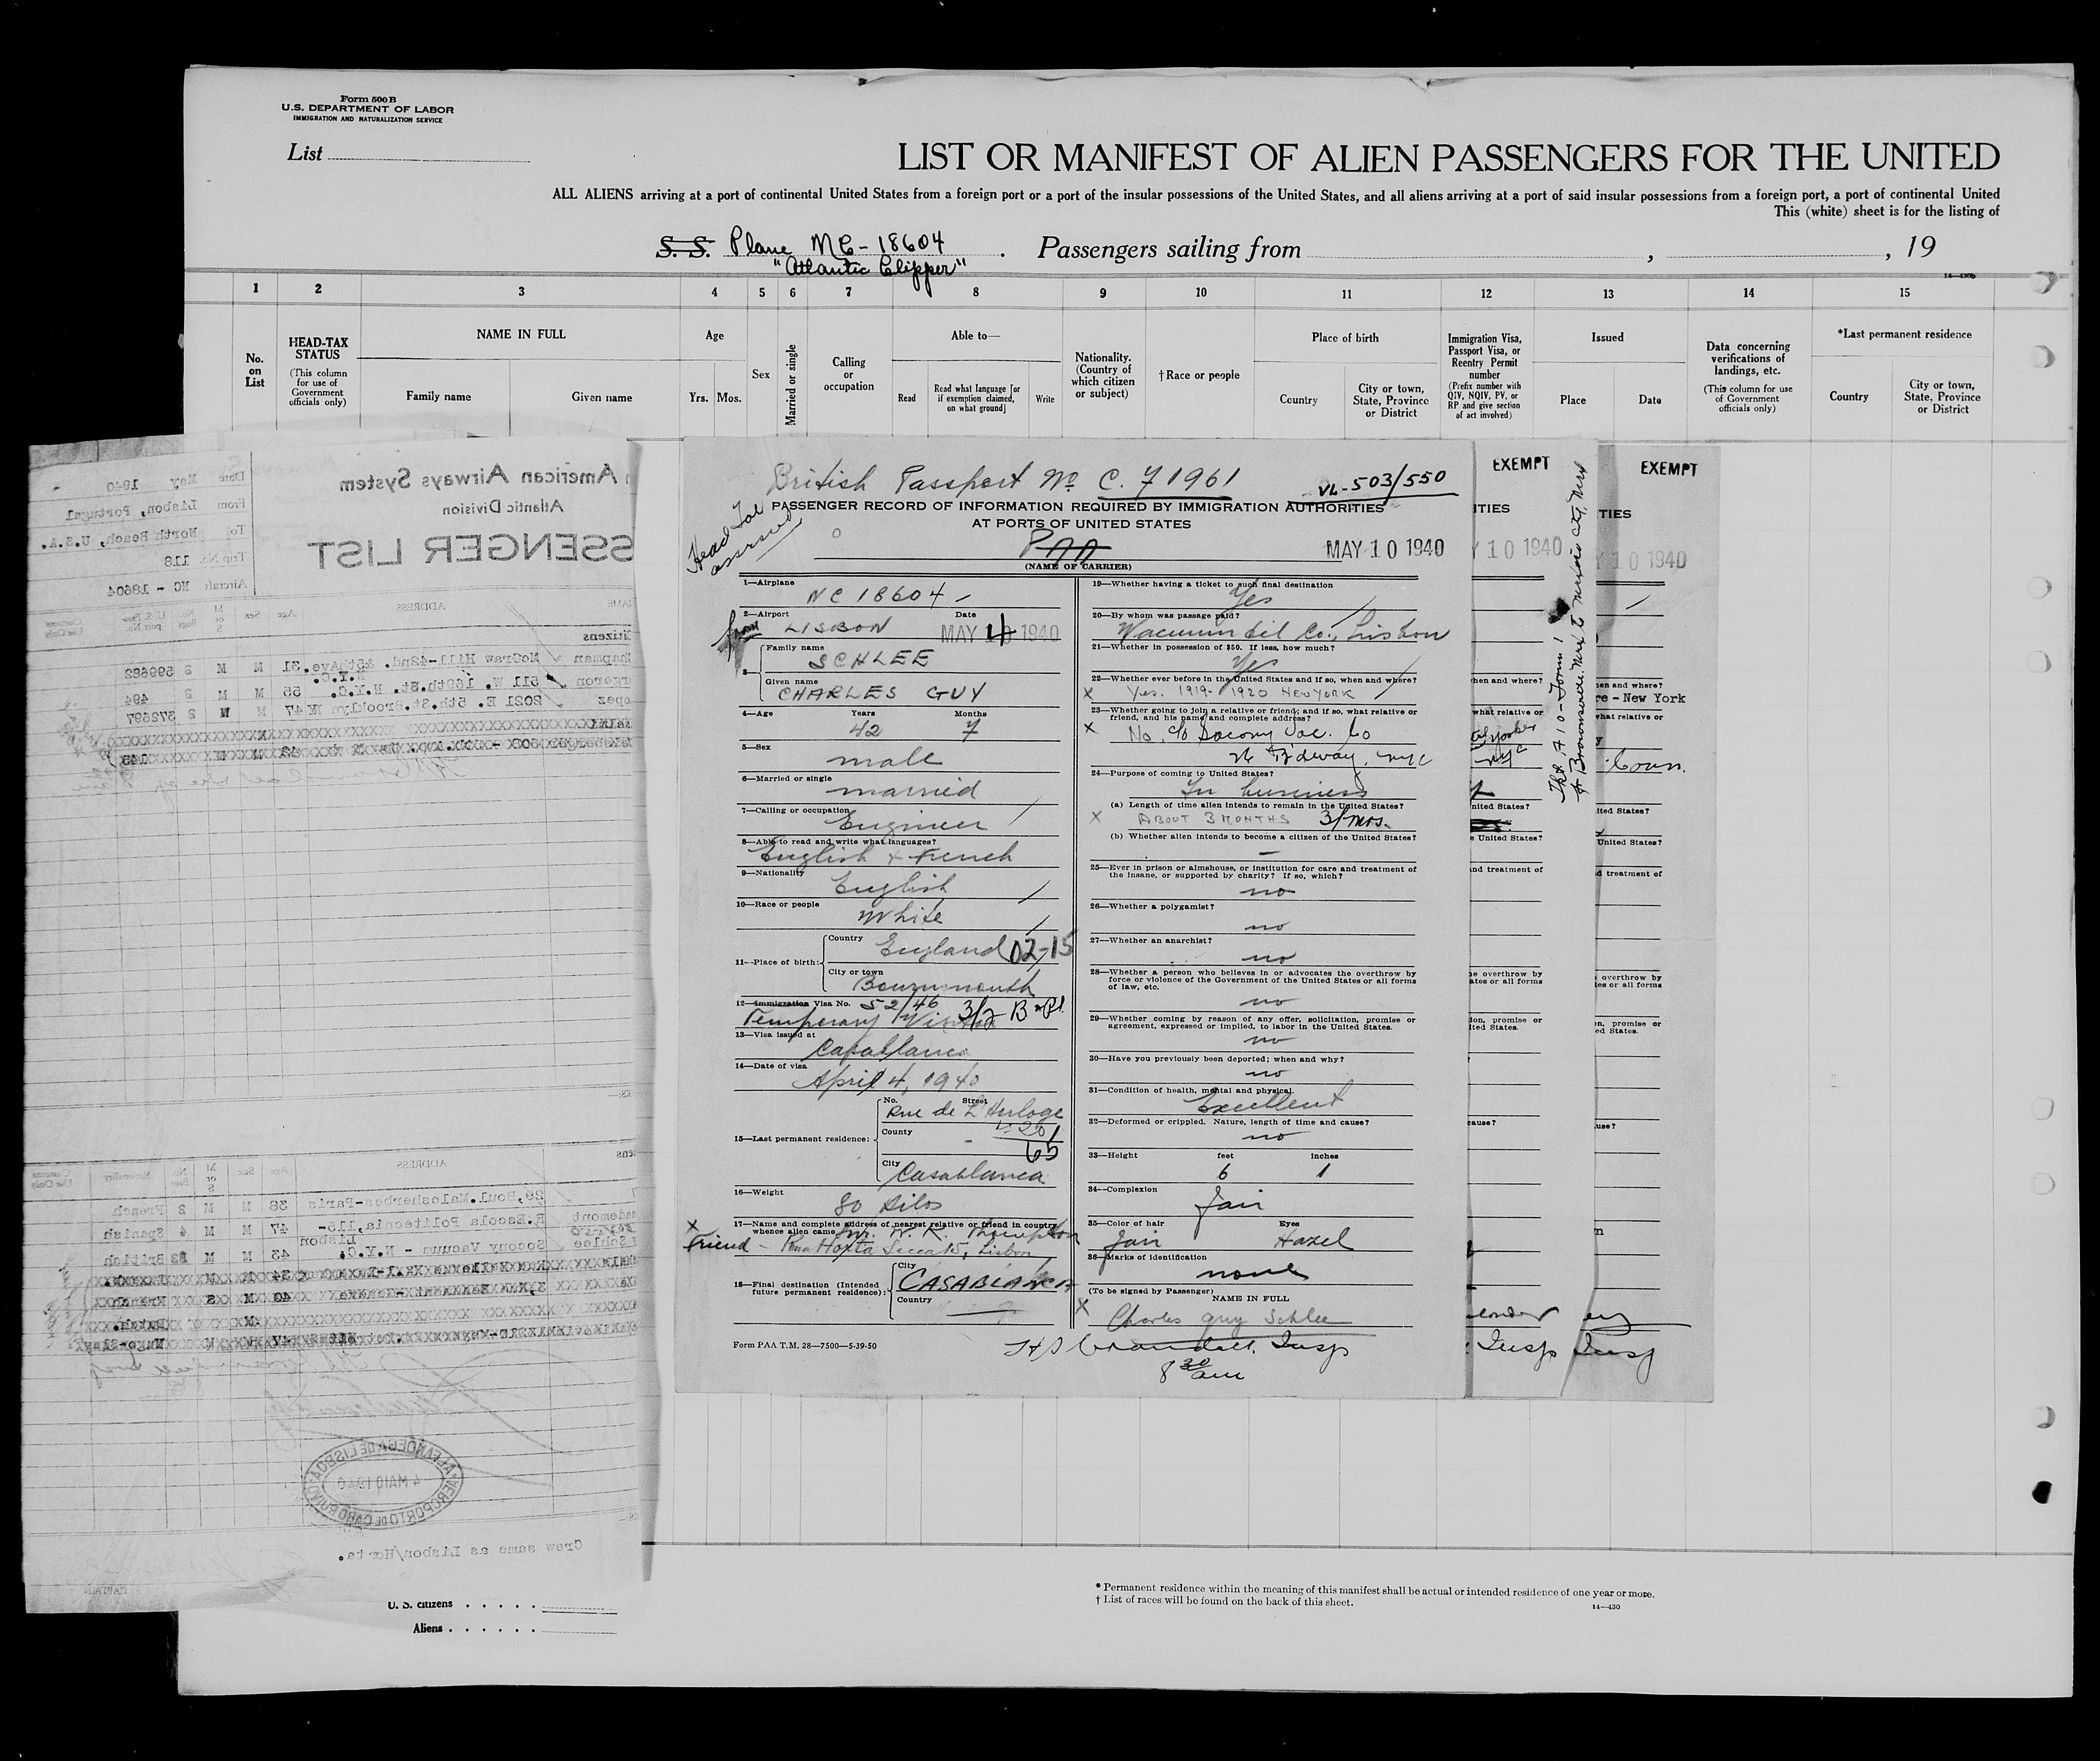 Form 500B
U.S. DEPARTMENT OF LABOR
IMMIGRATION AND NATURALIZATION SERVICE
List
LIST OR MANIFEST OF ALIEN PASSENGERS FOR THE UNITED
ALL ALIENS arriving at a port of continental United States from a foreign port or a port of the insular possessions of the United States, and all aliens arriving at a port of said insular possessions from a foreign port, a port of continental United
This (white) sheet is for the listing of
S. S. Plane NC-18604 . Passengers sailing from , , 19
"Atlantic Clipper"
1 2 3 4 5 6 7 8 9 10 11 12 13 14 15
No. on List
HEAD-TAX STATUS
(This column for use of Government officials only)
NAME IN FULL
Family name Given name
Age
Yrs. Mos.
Sex
Married or single
Calling or occupation
Able to—
Read
Read what language [or if exemption claimed, on what ground]
Write
Nationality. (Country of which citizen or subject)
†Race or people
Place of birth
Country
City or town, State, Province or District
Immigration Visa, Passport Visa, or Reentry Permit number
(Prefix number with QIV, NQIV, PV, or RP and give section of act involved)
Issued
Place Date
Data concerning verifications of landings, etc.
(This column for use of Government officials only)
*Last permanent residence
Country
City or town, State, Province or District
American Airways System
Atlantic Division
SSENGER LIST
Date May 1940
From Lisbon, Portugal
To North Beach, U.S.A.
Trip No. 118
Aircraft NC - 18604
NAME ADDRESS Age Sex M or S No. Bags U.S. Pass-port No. Customs Use Only
Citizens
hapman McGraw Hill-42nd. &5thAve. 31 M M 2 599682
N.Y.C.
meron 511 W. 169th.St. N.Y.C. 55 M M 2 494
opez 2021 E. 5th.St.Brooklyn NY 47 M M 2 372697
ADDRESS Age Sex M or S No. Bags Nationality Customs Use Only
29,Boul.Malesherbes-Paris 38 M M 2 French
ademont R.Escola Politecnia,115- 47 M M 4 Spanish
Lisbon
Schlee Socony Vacuum - N.Y.C. 43 M M 2 British
ALFANDEGA DE LISBOA
4 MAIO 1940
AEROPORTO DE CABO RUIVO
Crew same as Lisbon/Horta.
CAPTAIN
U. S. citizens . . . . .
Aliens . . . . . .
British Passport No C. 71961
VL-503/550
Head Tax
assured
PASSENGER RECORD OF INFORMATION REQUIRED BY IMMIGRATION AUTHORITIES
AT PORTS OF UNITED STATES
PAA MAY 10 1940
(NAME OF CARRIER)
1—Airplane NC 18604
2—Airport Date
from LISBON MAY 4 1940
3— Family name SCHLEE
Given name CHARLES GUY
4—Age Years Months
42 7
5—Sex male
6—Married or single married
7—Calling or occupation Engineer
8—Able to read and write what languages?
English & French
9—Nationality English
10—Race or people White
11—Place of birth: Country England 02-15
City or town Bournemouth
12—Immigration Visa No. 52/46 3/2 B
Temporary Visitor
13—Visa issued at Casablanca
14—Date of visa April 4, 1940
15—Last permanent residence: No. Street
Rue de L'Horloge
County
65
City Casablanca
16—Weight 80 Kilos
17—Name and complete address of nearest relative or friend in country whence alien came Mr. W. K. Thompson
Friend - Rua Horta Secca 15, Lisbon
18—Final destination (Intended future permanent residence): City CASABLANCA
Country
Form PAA T.M. 28—7500—5-39-50
19—Whether having a ticket to such final destination
Yes
20—By whom was passage paid?
Vacuum Oil Co., Lisbon
21—Whether in possession of $50. If less, how much?
Yes
22—Whether ever before in the United States and if so, when and where?
Yes. 1919-1920 NEW YORK
23—Whether going to join a relative or friend; and if so, what relative or friend, and his name and complete address?
No. c/o Socony Vac. Co
26 B'dway, NYC
24—Purpose of coming to United States?
On business
(a) Length of time alien intends to remain in the United States?
ABOUT 3 MONTHS 3/mos.
(b) Whether alien intends to become a citizen of the United States?
—
25—Ever in prison or almshouse, or institution for care and treatment of the insane, or supported by charity? If so, which?
no
26—Whether a polygamist?
no
27—Whether an anarchist?
no
28—Whether a person who believes in or advocates the overthrow by force or violence of the Government of the United States or all forms of law, etc.
no
29—Whether coming by reason of any offer, solicitation, promise or agreement, expressed or implied, to labor in the United States.
no
30—Have you previously been deported; when and why?
no
31—Condition of health, mental and physical.
Excellent
32—Deformed or crippled. Nature, length of time and cause?
no
33—Height feet inches
6 1
34—Complexion
Fair
35—Color of hair Eyes
Fair Hazel
36—Marks of identification
none
(To be signed by Passenger)
NAME IN FULL
Charles Guy Schlee
Insp
8 30 am
EXEMPT
ITIES
Y 10 1940
hen and where?
what relative or
NYC
nited States?
e United States?
nd treatment of
he overthrow by
ates or all forms
ion, promise or
ited States.
cause?
Insp
EXEMPT
TIES
10 1940
en and where?
re - New York
hat relative or
Conn.
ited States?
United States?
d treatment of
overthrow by
es or all forms
n, promise or
ed States.
use?
Insp
* Permanent residence within the meaning of this manifest shall be actual or intended residence of one year or more.
† List of races will be found on the back of this sheet.
14—430